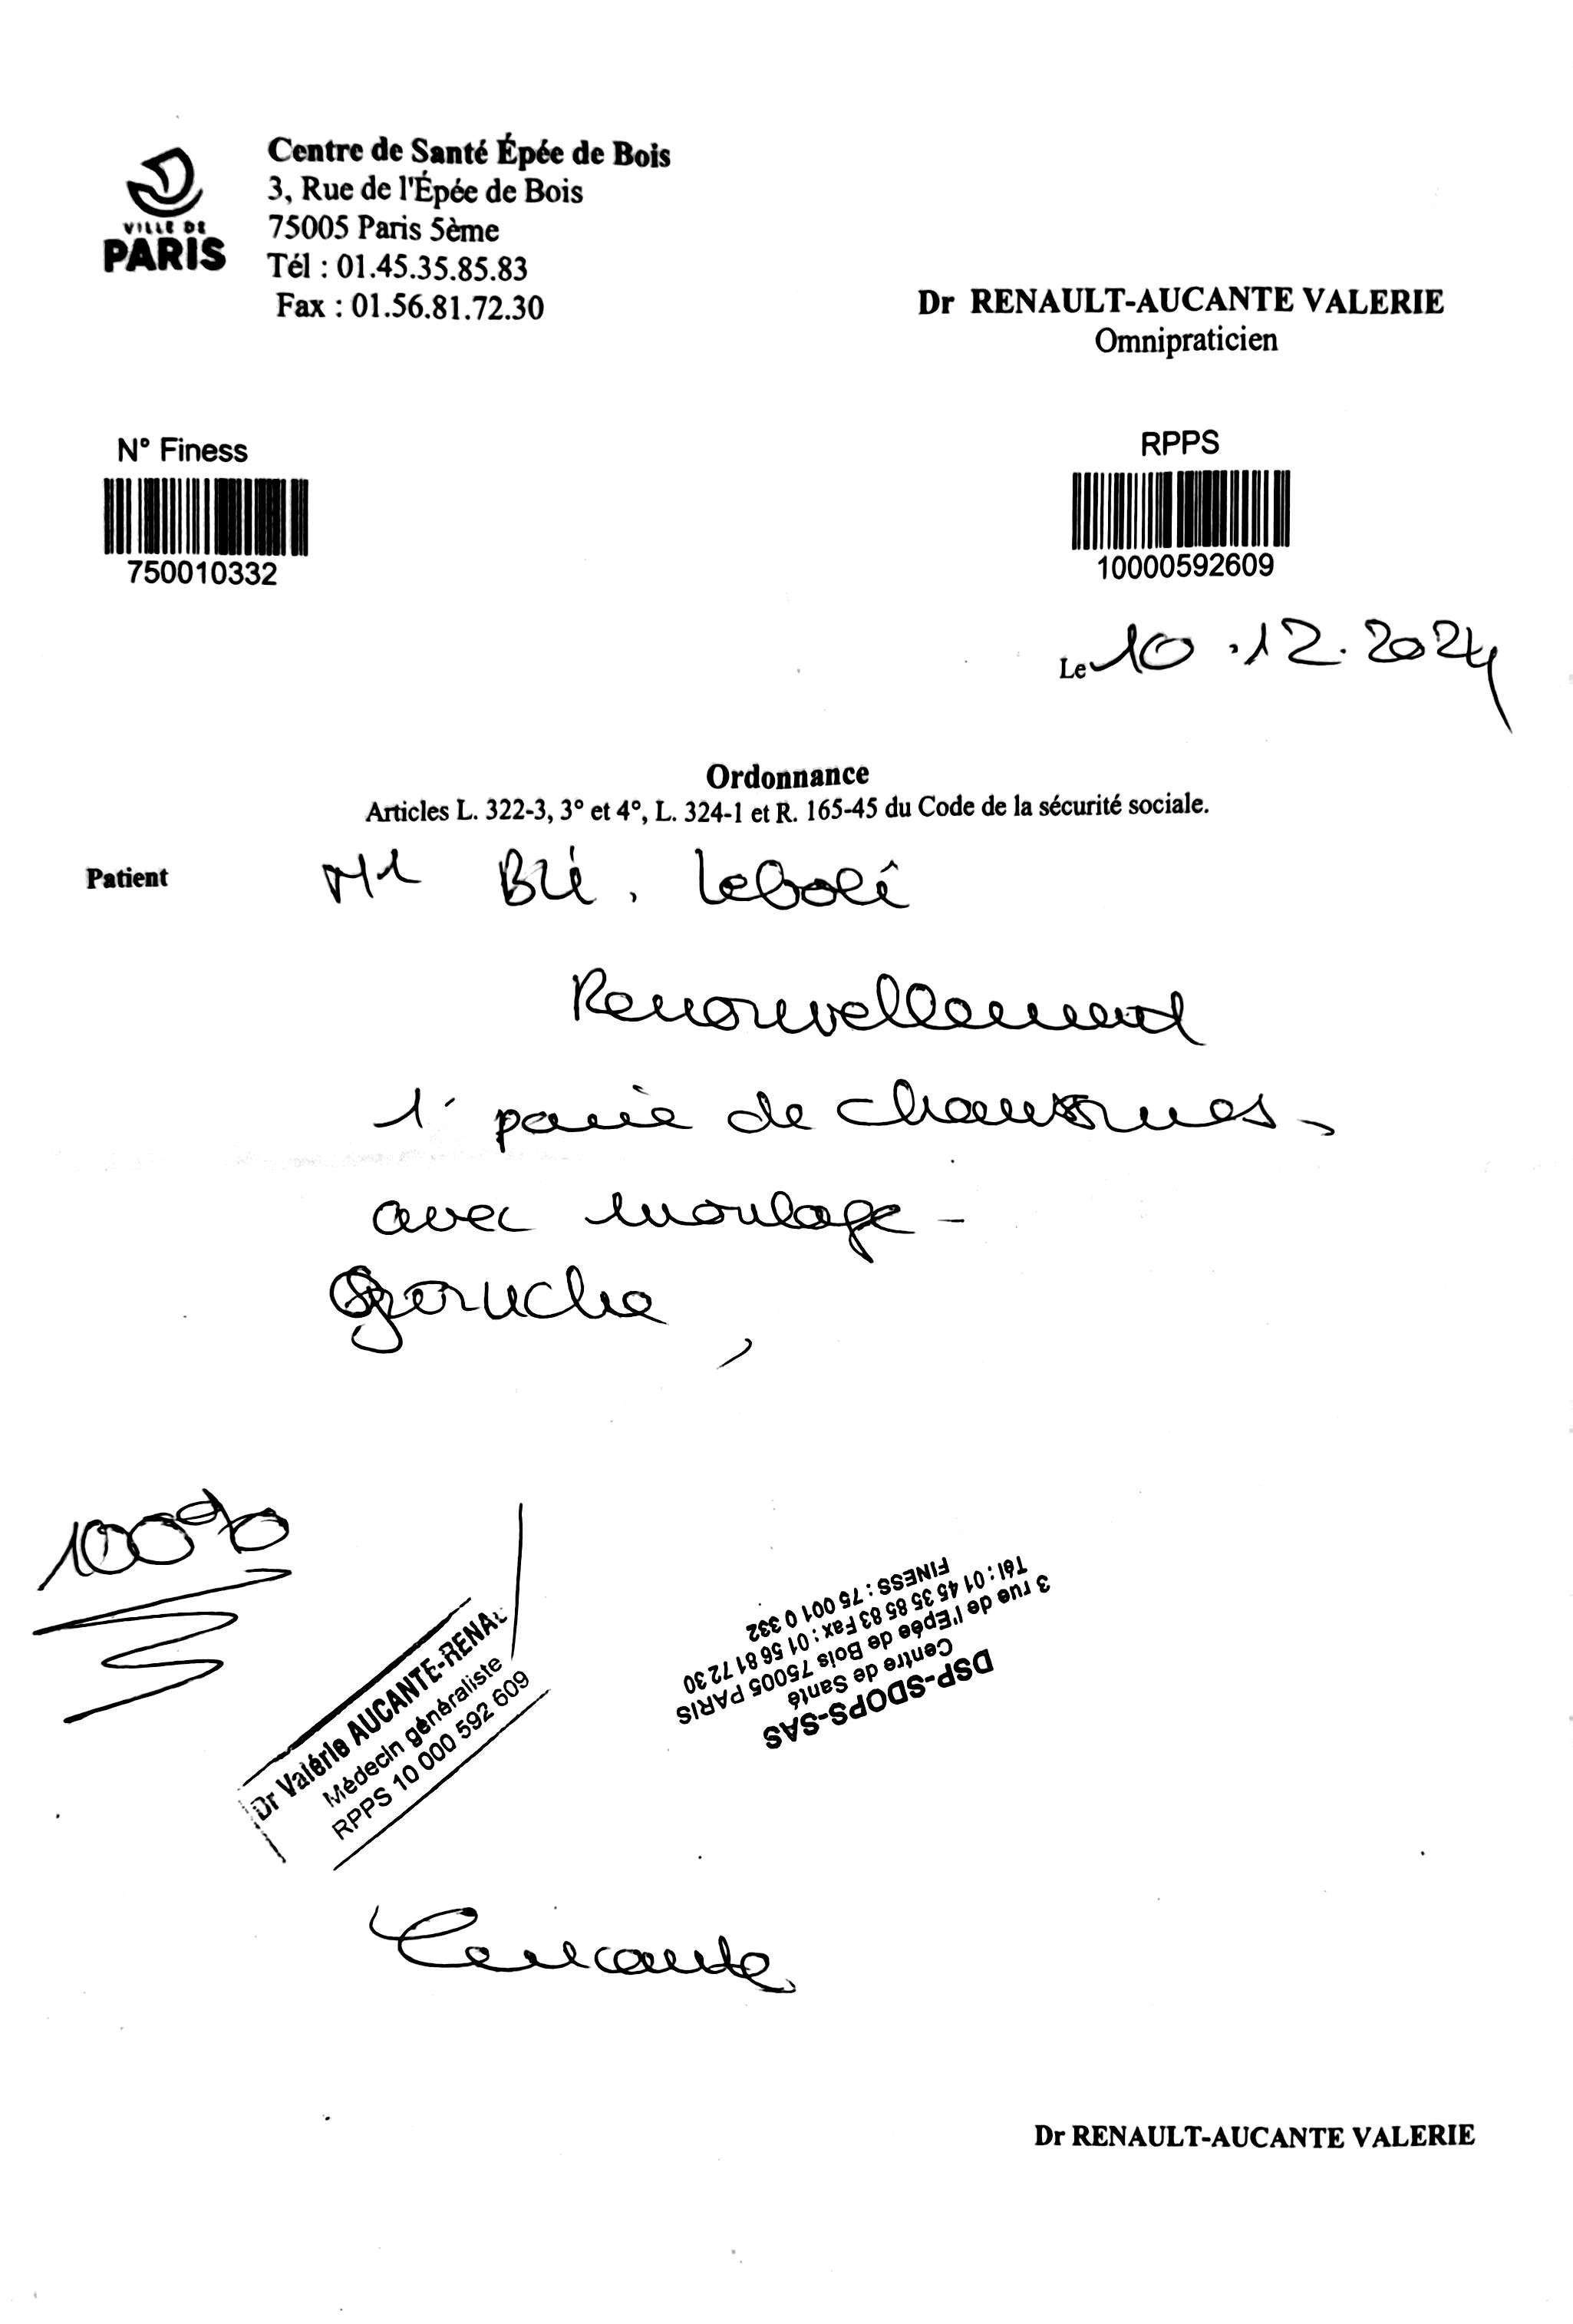 VILLE DE
PARIS
Centre de Santé Épée de Bois
3, Rue de l'Épée de Bois
75005 Paris 5ème
Tél : 01.45.35.85.83
Fax : 01.56.81.72.30
Dr RENAULT-AUCANTE VALERIE
Omnipraticien
N° Finess
750010332
RPPS
10000592609
Le 10.12.2024
Ordonnance
Articles L. 322-3, 3° et 4°, L. 324-1 et R. 165-45 du Code de la sécurité sociale.
Patient
Renouvellement
1 paire de chaussures
avec moulage -
gauche
100%
Dr Valérie AUCANTE-RENA
Médecin généraliste
RPPS 10 000 592 609
DSP-SDOPS-SAS
Centre de Santé
3 rue de l'Epée de Bois 75005 PARIS
Tél : 01 45 35 85 83 Fax : 01 56 81 72 30
FINESS : 75 001 0 332
Aucante
Dr RENAULT-AUCANTE VALERIE